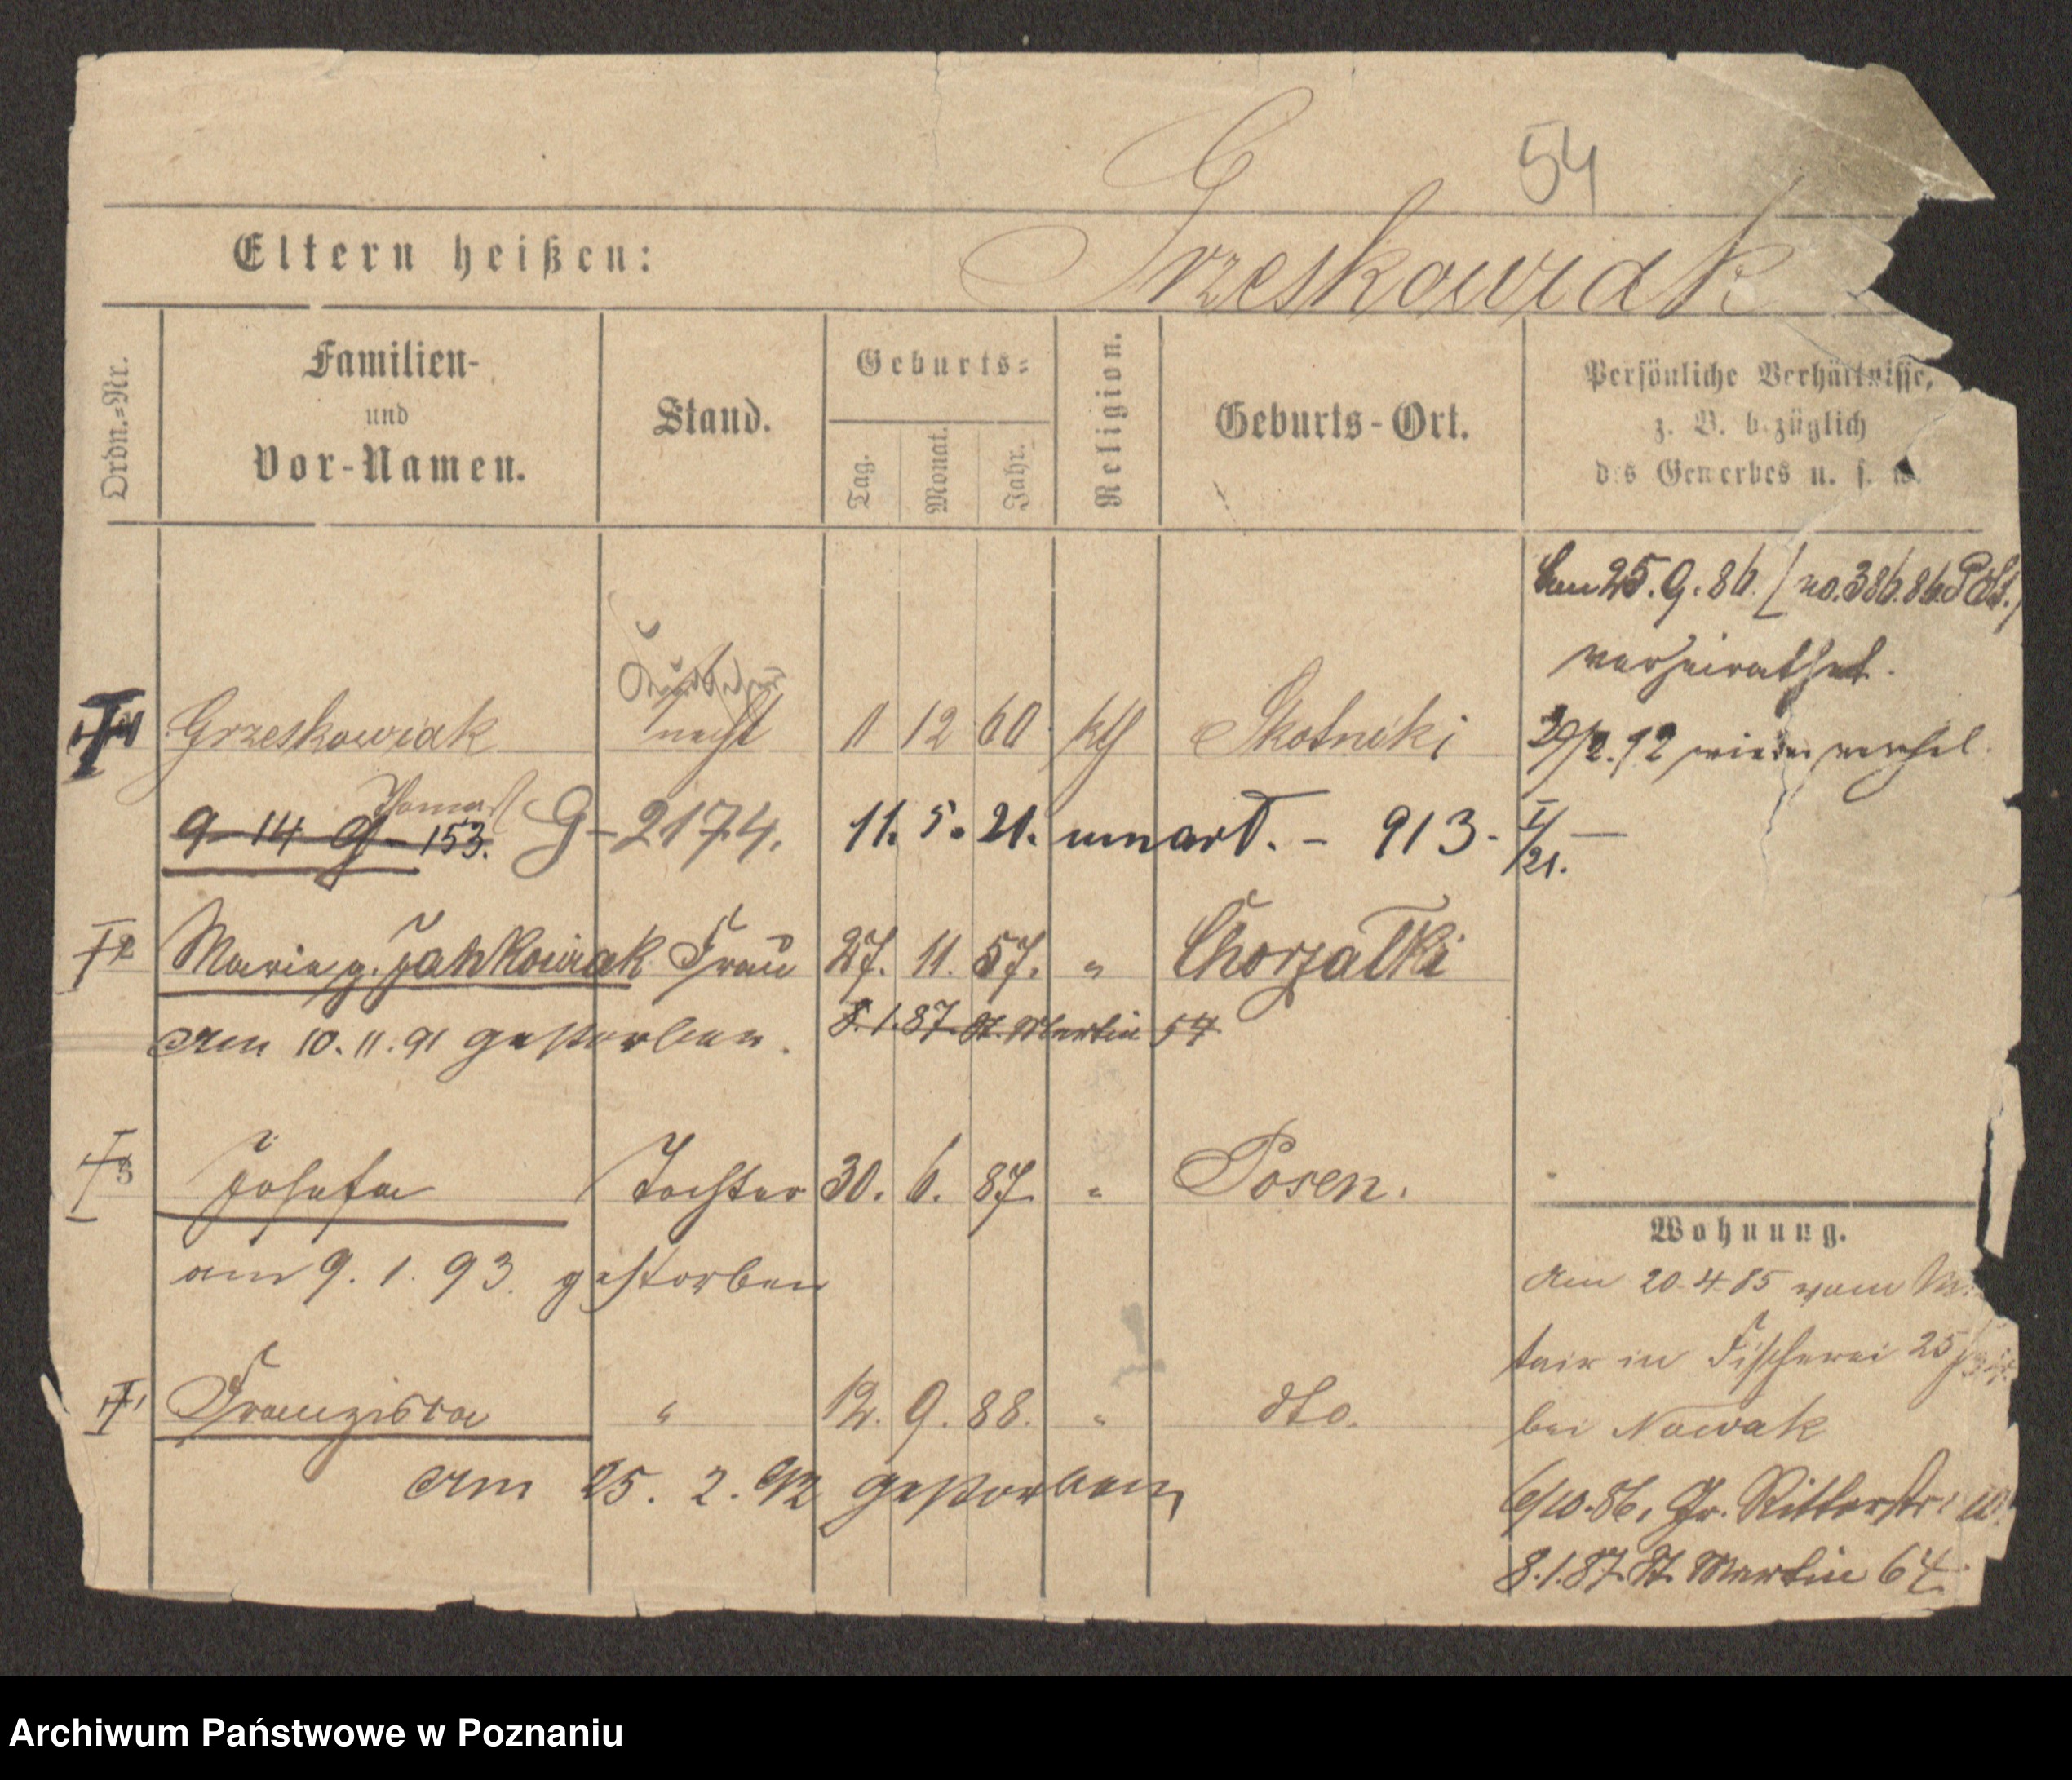 54
Grzeskowiak
Eltern heißen:
Ordn.=Nr.
Familien-
und
Vor-Namen.
Stand.
Geburts=
Tag.
Monat.
Jahr.
Religion.
Geburts-Ort.
Persönliche Verhältnisse,
z. B. bezüglich
des Gewerbes u. s. w.
25.9.86. [no. 386.86
verheirathet.
Grzeskowiak 11 12 60 kth Skotniki
2.92 wieder verehel.
Thomas
9-14 G-153. G-2174. 11. 5. 21. umart. - 913. I/21. —
2 Maria g. Jankowiak Frau 27. 11. 57. " Chorzalki
8.1.87. St. Martin 54
Am 10.11.91 gestorben.
3 Josefa Tochter 30. 6. 87. " Posen.
am 9. 1. 93. gestorben
Wohnung.
Am 20.4.85 vom
tair in Fischerei 25
Franziska " 12. 9. 88. " dto.
bei Nowak
Am 25. 2. 92 gestorben
6/10.86. Gr. Ritterstr.
8.1.87. St. Martin 64
Archiwum Państwowe w Poznaniu